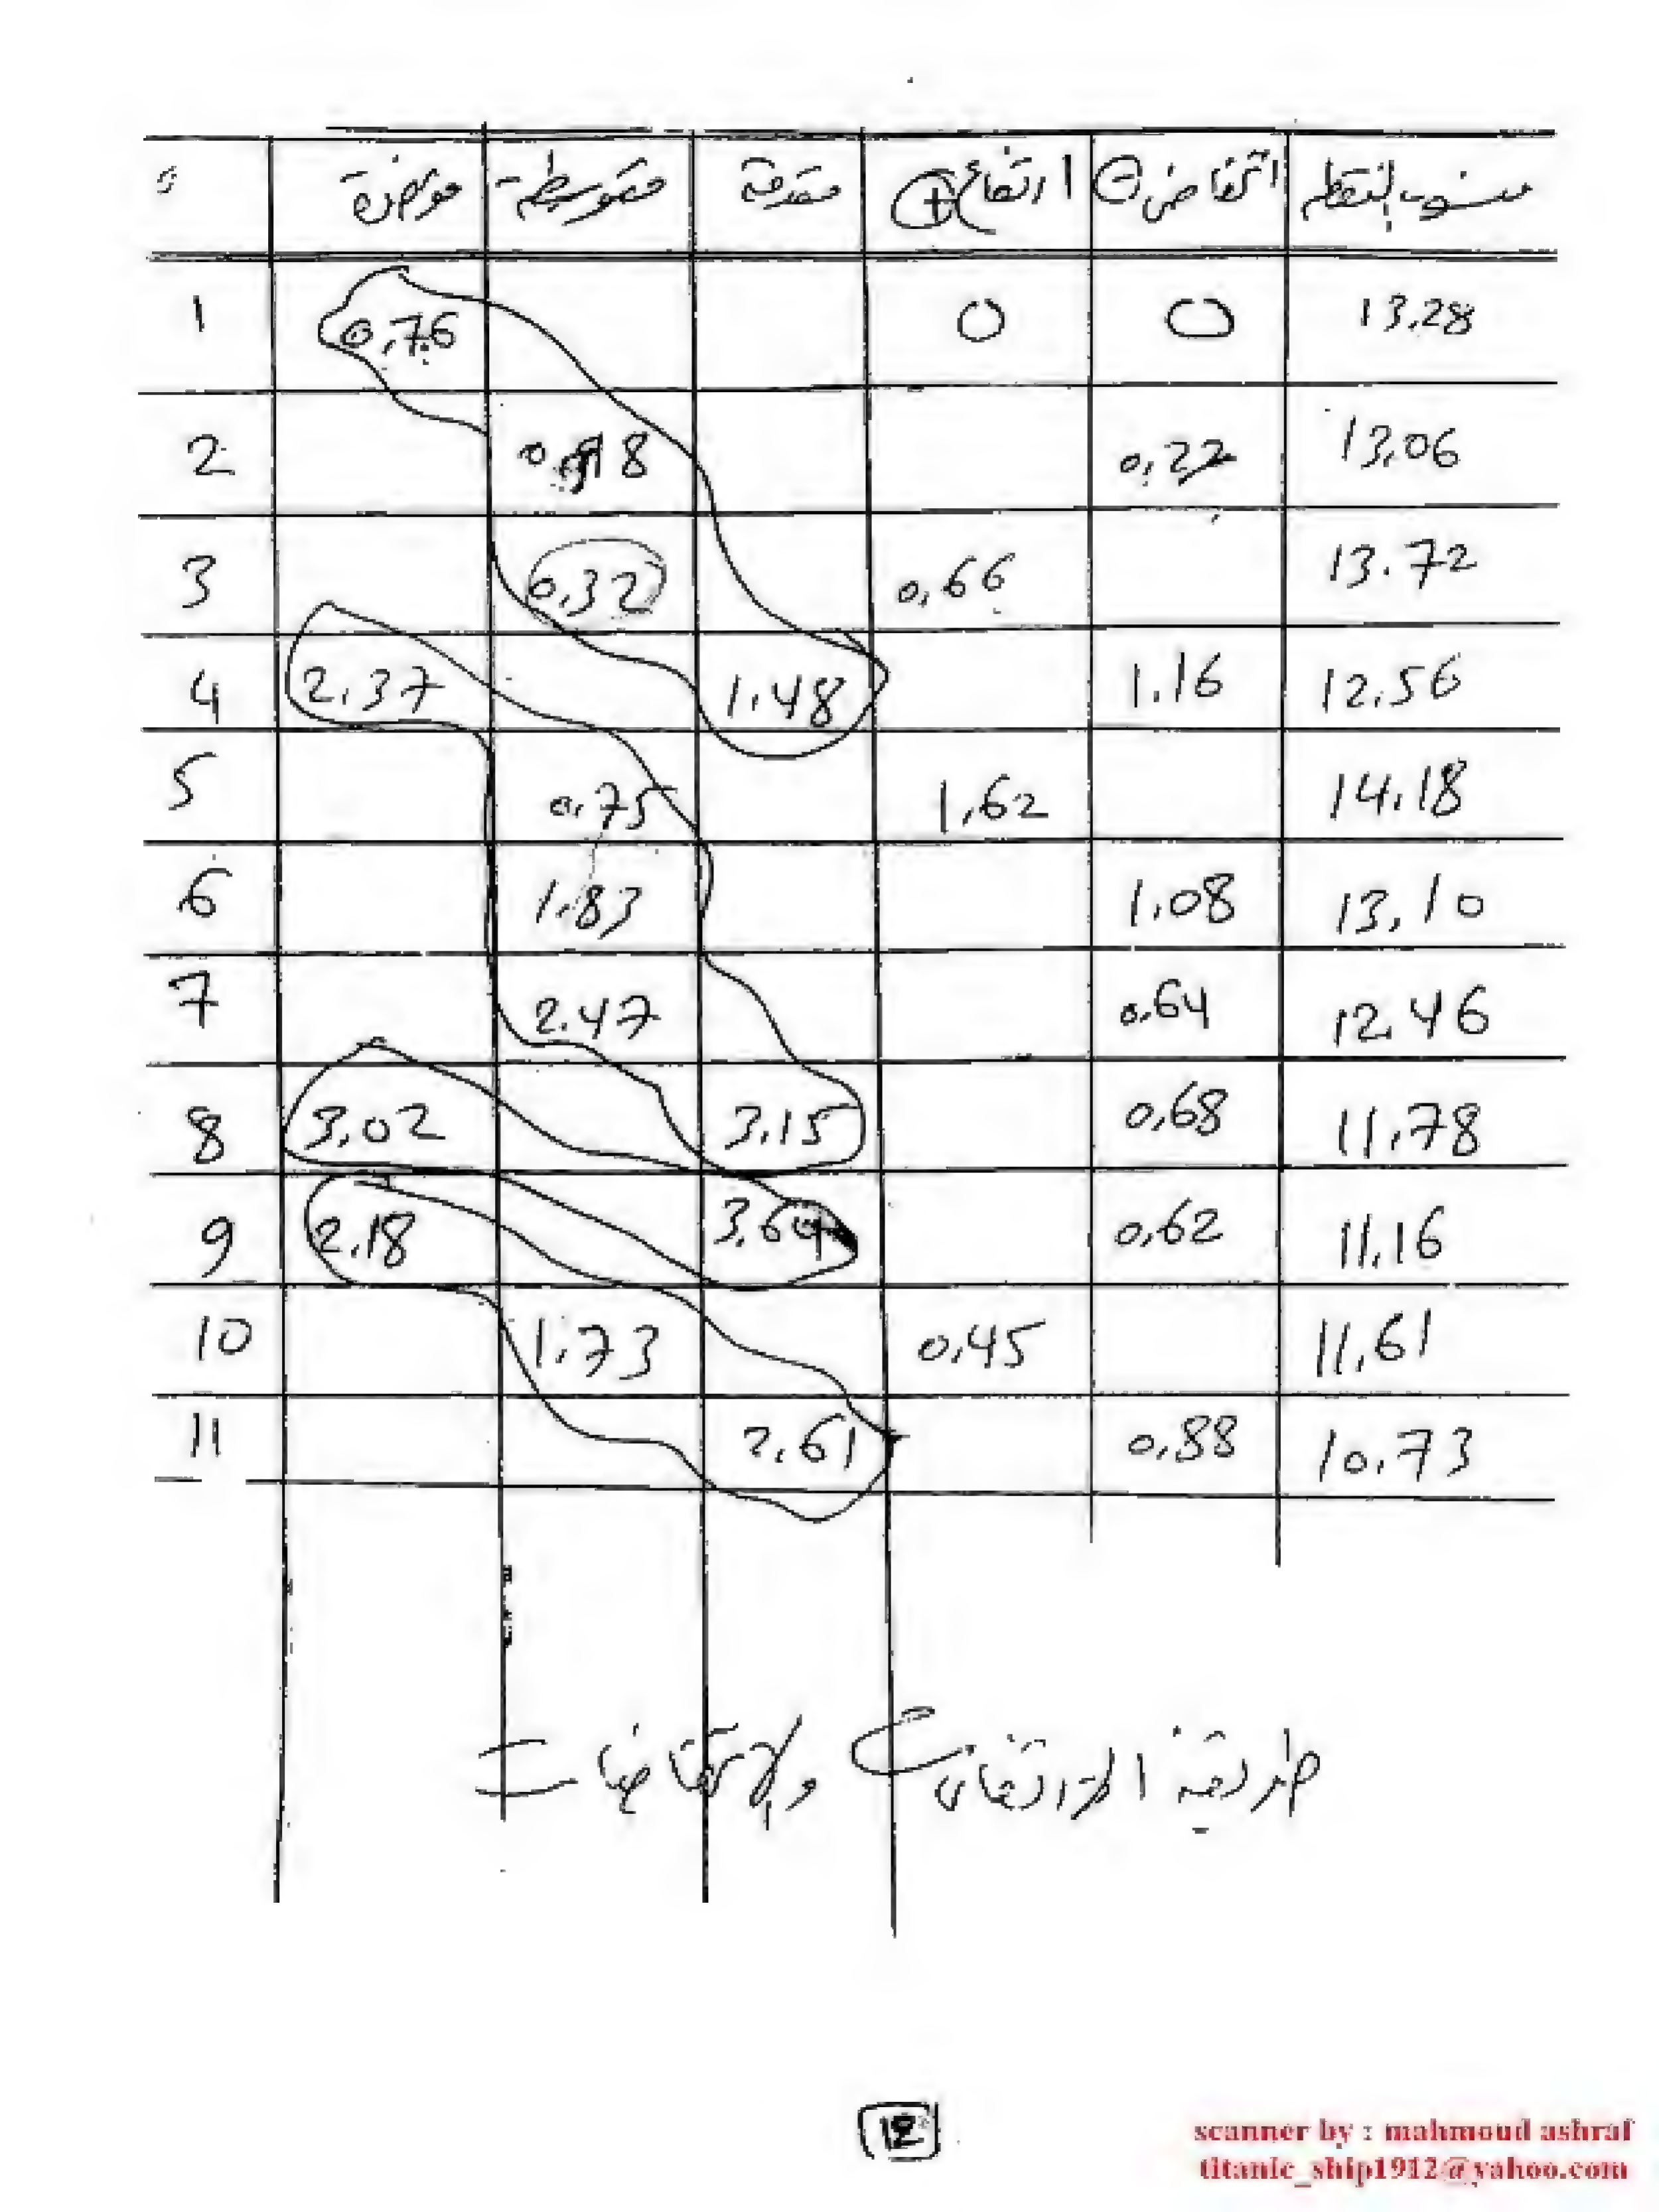 ن مؤخرة متوسطة مقدمة ارتفاع + انخفاض - منسوب النقطة
1 0,76 0 0 13,28
2 0,98 0,22 13,06
3 0,32 0,66 13.72
4 2,37 1,48 1,16 12,56
5 0,75 1,62 14,18
6 1,83 1,08 13,10
7 2,47 0,64 12,46
8 3,02 3,15 0,68 11,78
9 2,18 3,64 0,62 11,16
10 1,73 0,45 11,61
11 2,61 0,88 10,73
طريقة الارتفاعات والانخفاضات
12
scanner by : mahmoud ashraf
titanic_ship1912@yahoo.com